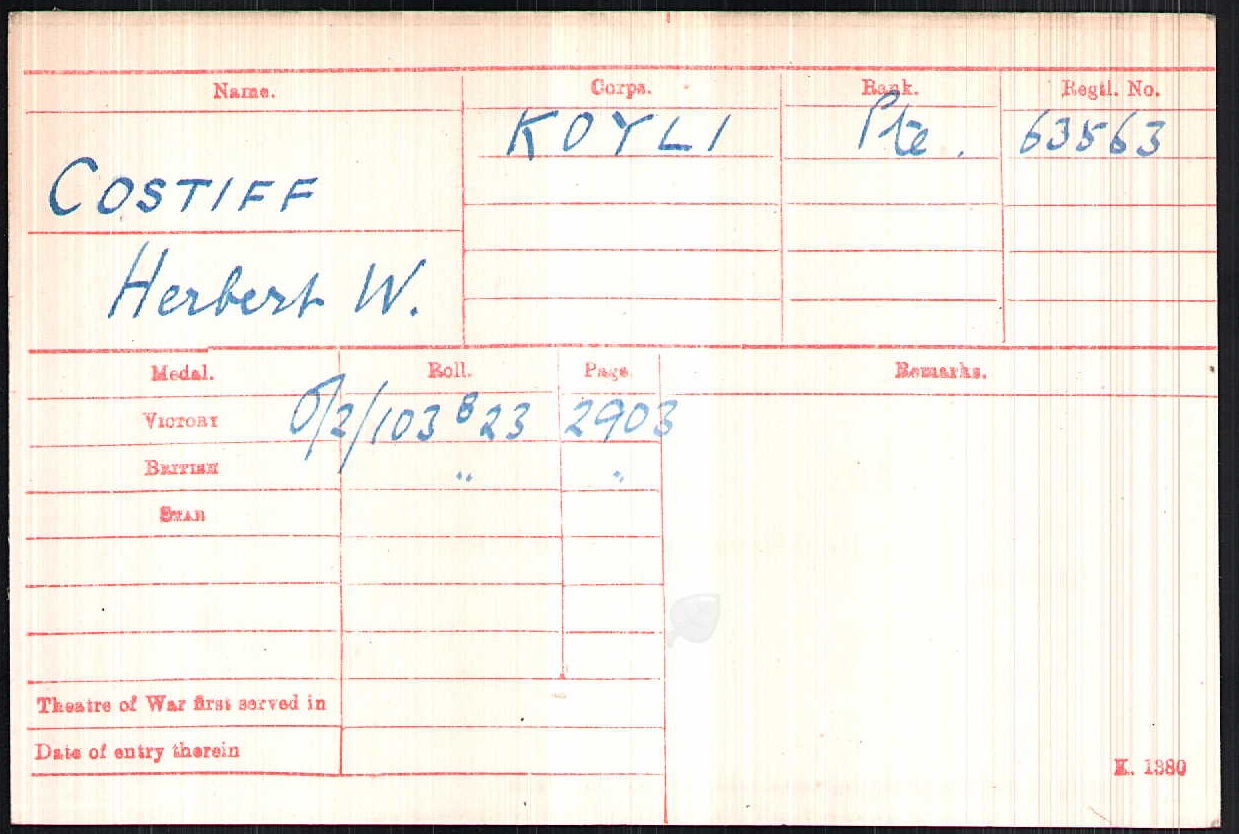 Name. Corps. Rank. Regtl. No.
KOYLI Pte. 63563
COSTIFF
Herbert W.
Medal. Roll. Page. Remarks.
VICTORY O/2/103 B 23 2903
BRITISH " "
STAR
Theatre of War first served in
Date of entry therein
K. 1380